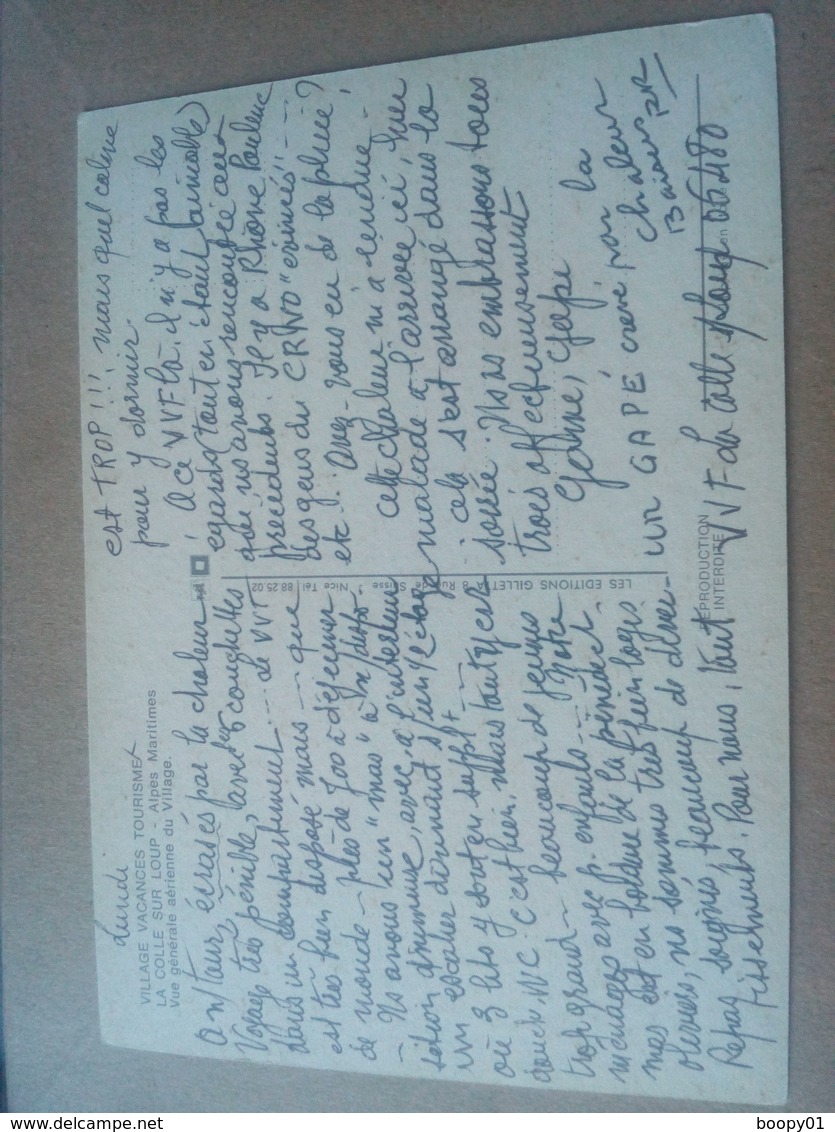 Lundi
VILLAGE VACANCES TOURISME
LA COLLE SUR LOUP - Alpes Maritimes
Vue générale aérienne du Village.
écrasés par la chaleur
Voyage très pénible, avec couchettes
dans un compartiment --- Le VVF
est très bien disposé mais --- que
de monde - plus de 700 à déjeuner
Ns avons un "mas" à n/ dispo
sition d'immense, avec, à l'intérieur
un escalier donnant s/ un 1er étage
où 3 lits y sont en suppl+ -
douch, WC. C'est bien, mais tout y est
trop grand - beaucoup de jeunes
ménages avec p. enfants --- Notre
mas est en bordure de la pinède et
oliviers, ns sommes très bien logés.
Repas soignés, beaucoup de diver-
tissements. Pour nous, tout
est TROP!!! mais quel calme
pour y dormir.
A ce VVF là, il n'y a pas les
égards, tout en étant aimables
que ns avons rencontrés aux
précédents. Il y a Rhône Poulenc
des gens du CRNO "coincés" ---
etc! Avez-vous eu de la pluie?
cette chaleur m'a rendue
malade à l'arrivée ici, hier
cela s'est arrangé dans la
soirée. Ns vs embrassons tous
trois affectueusement
Gapé
un GAPÉ crevé par la
chaleur
Baisers
VVF La Colle s/Loup 06480
LES EDITIONS GILLETTA, 8 Rue de Suisse - Nice Tél 88.25.02
REPRODUCTION
INTERDITE
delcampe.net
boopy01